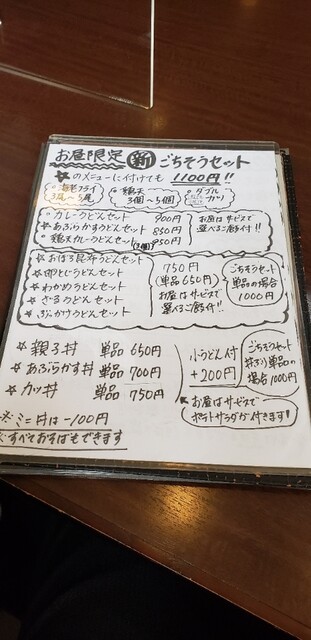 お昼限定 新 ごちそうセット
☆のメニューに付けても 1100円!!
海老フライ 3尾〜5尾
鶏天 3個〜5個
ダブルカツ
カレーうどんセット 900円
☆あぶらかすうどんセット 850円
鶏天カレーうどんセット(2個) 950円
お昼はサービスで
選べるご飯付!!
☆おぼろ昆布うどんセット
☆卵とじうどんセット
☆わかめうどんセット
☆ざるうどんセット
☆ぶっかけうどんセット
750円
(単品650円)
お昼はサービスで
選べるご飯付!!
ごちそうセット
単品の場合
1000円
☆親子丼 単品 650円
☆あぶらかす丼 単品 700円
☆カツ丼 単品 750円
小うどん付
+200円
ごちそうセット
丼もの単品の
場合1000円
お昼はサービスで
ポテトサラダが付きます!
※ミニ丼は-100円
※すべておそばもできます